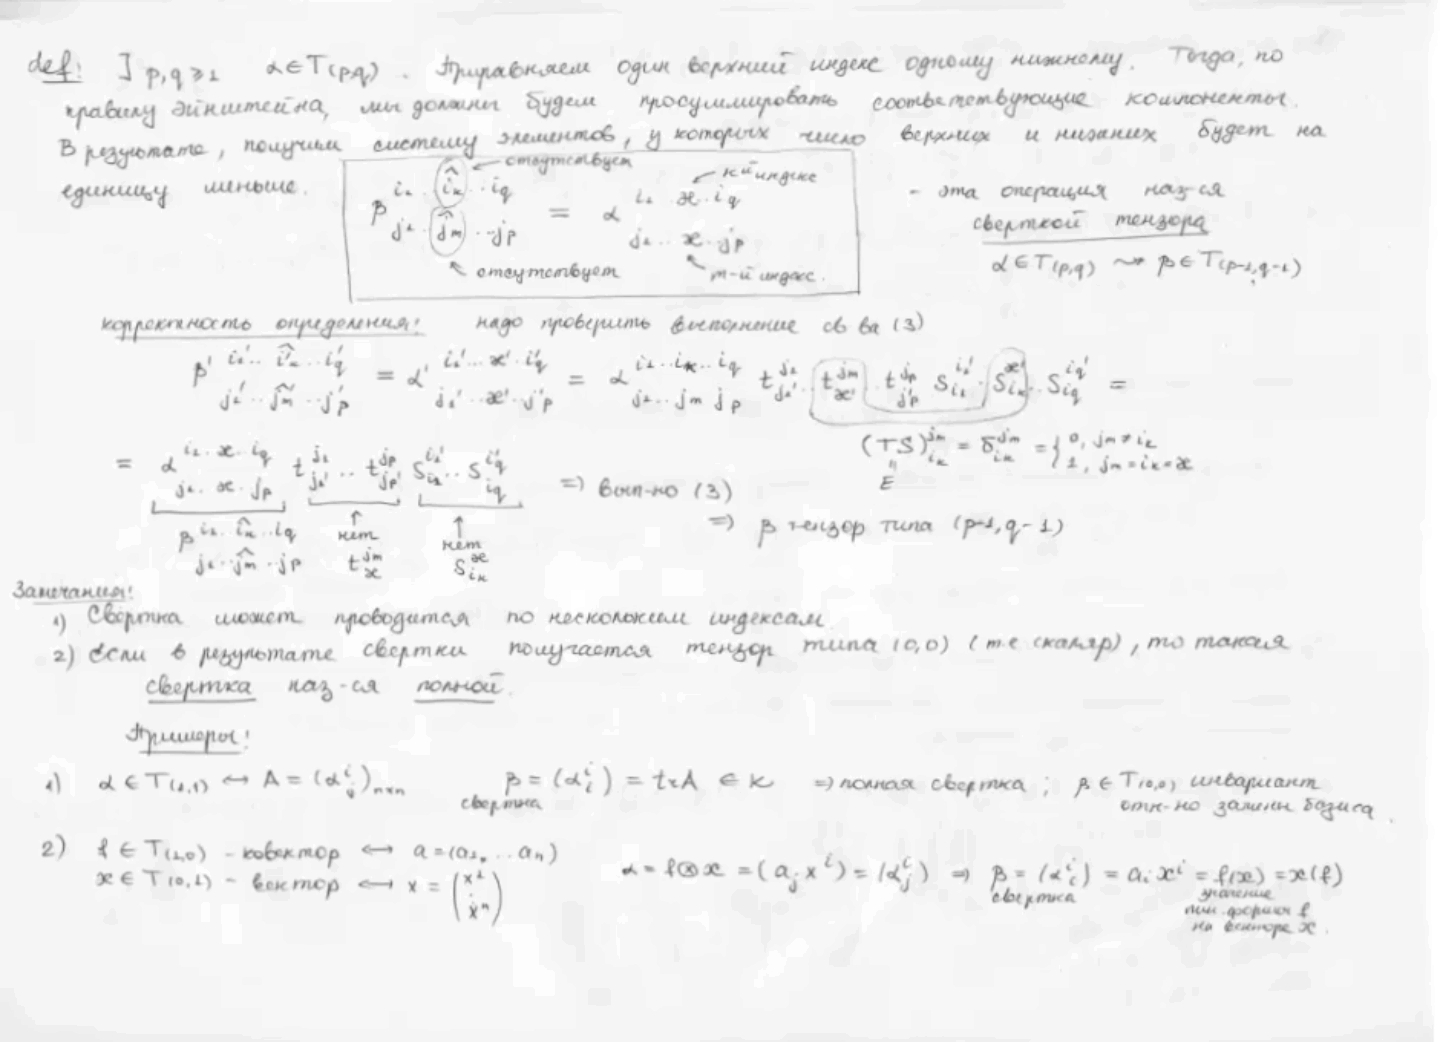 def: ] p,q ⩾ 1 α ∈ T(p,q). Приравняем один верхний индекс одному нижнему. Тогда, по
правилу Эйнштейна, мы должны будем просуммировать соответствующие компоненты.
В результате, получим систему элементов, у которых число верхних и нижних будет на
единицу меньше.
отсутствует
β^{i₁..î_k..i_q}_{j₁..ĵ_m..j_p} = α^{i₁..æ..i_q}_{j₁..æ..j_p}
к-й индекс
отсутствует
m-й индекс.
- эта операция наз-ся
сверткой тензора
α ∈ T(p,q) ⇝ β ∈ T(p-1,q-1)
корректность определения: надо проверить выполнение св-ва (3)
β'^{i₁'..î_k'..i_q'}_{j₁'..ĵ_m'..j_p'} = α'^{i₁'...æ'..i_q'}_{j₁'..æ'..j_p'} = α^{i₁..i_k..i_q}_{j₁..j_m j_p} t^{j₁}_{j₁'}..t^{j_m}_{æ'}..t^{j_p}_{j_p'} S^{i₁'}_{i₁}..S^{æ'}_{i_k}..S^{i_q'}_{i_q} =
(TS)^{j_m}_{i_k} = δ^{j_m}_{i_k} = { 0, j_m ≠ i_k
1, j_m = i_k = æ
"
E
= α^{i₁..æ..i_q}_{j₁..æ..j_p} t^{j₁}_{j₁'}..t^{j_p}_{j_p'} S^{i₁'}_{i₁}..S^{i_q'}_{i_q} ⇒ вып-но (3)
⇒ β тензор типа (p-1, q-1)
β^{i₁..î_k..i_q}_{j₁..ĵ_m..j_p} ↑ нет t^{j_m}_{æ} ↑ нет S^{æ}_{i_k}
Замечания:
1) Свёртка может проводится по нескольким индексам.
2) Если в результате свертки получается тензор типа (0,0) (т.е скаляр), то такая
свертка наз-ся полной.
Примеры:
1) α ∈ T(1,1) ↔ A = (α^i_j)_{n×n} β = (α^i_i) = tr A ∈ K ⇒ полная свертка; β ∈ T(0,0) инвариант
свертка
отн-но замены базиса.
2) f ∈ T(1,0) - ковектор ↔ a = (a₁, ... a_n)
x ∈ T(0,1) - вектор ↔ x = (x¹ ⋮ xⁿ)
α = f⊗x = (a_j x^i) = (α^i_j) ⇒ β = (α^i_i) = a_i x^i = f(x) = x(f)
свертка
значение
лин. формы f
на векторе x.